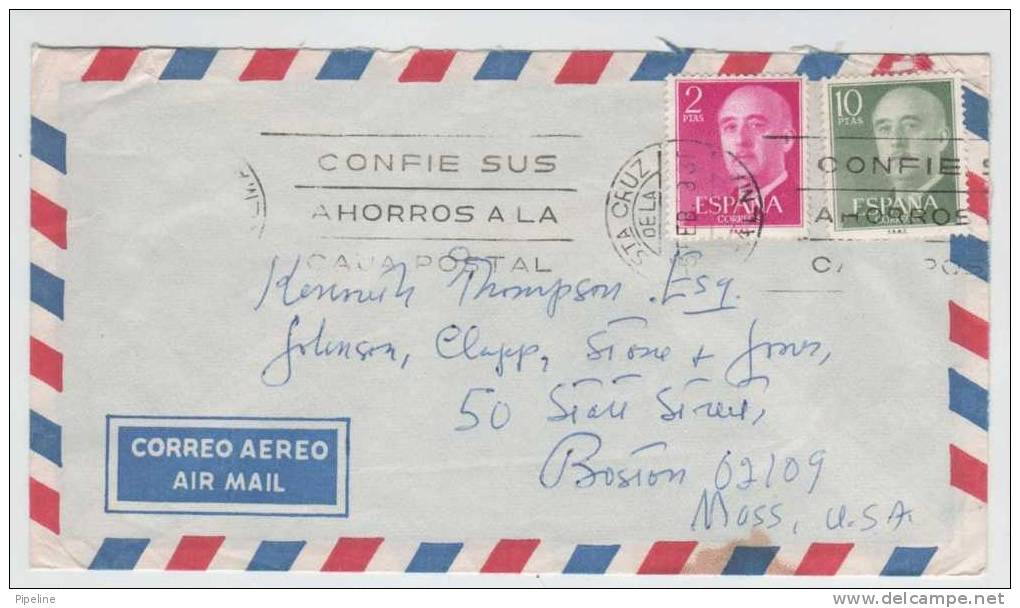 2 PTAS
ESPAÑA
CORREOS
10 PTAS
ESPAÑA
CONFIE SUS
AHORROS A LA
CAJA POSTAL
STA CRUZ
DE LA
FEB
CONFIE S
AHORROS
Kenneth Thompson Esq.
Johnson, Clapp, Stone + Jones,
50 State Street,
Boston 02109
Mass, U.S.A.
CORREO AEREO
AIR MAIL
Pipeline
http://www.delcampe.net